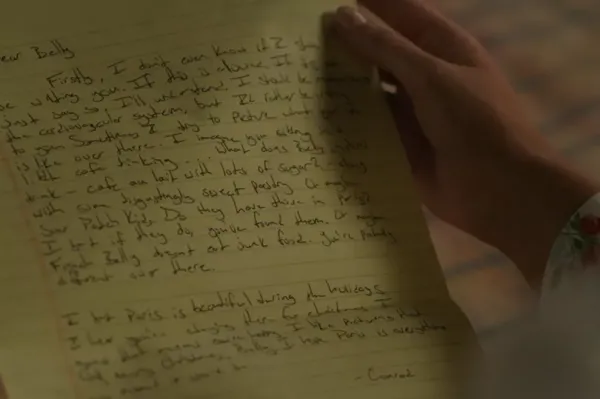 ear Belly
Firstly, I don't even know if I
be writing you. If this is
just say so, I'll understand. I should be
the cardiovascular system, but I'd rather be
to you. Sometimes I try to picture what
is like over there. I imagine you sitting in a
little cafe drinking - what does Belly
drink - cafe au lait with lots of sugar?
with some disgustingly sweet pastry. Or maybe
Sour Patch Kids. Do they have those in Paris?
I bet if they do, you've found them. Or maybe
French Belly doesn't eat junk food. You're probably
different over there.
I bet Paris is beautiful during the holidays.
I hear you're staying there for Christmas. I
guess that means you're happy. I like picturing that
Belly. I hope Paris is everything
- Conrad